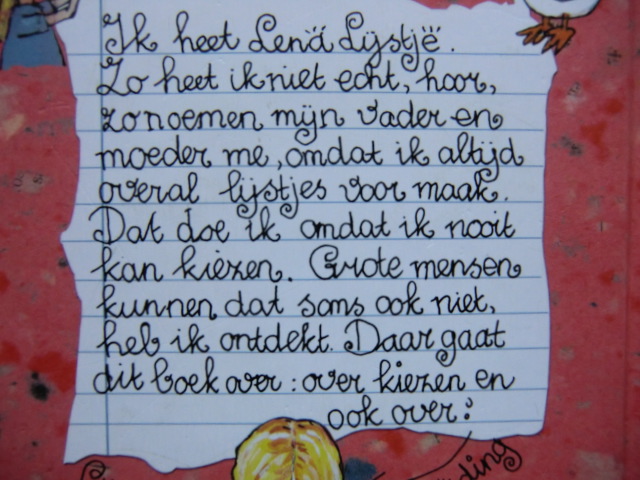 Ik heet Lenä Lijstjë.
Zo heet ik niet echt, hoor,
zo noemen mijn vader en
moeder me, omdat ik altijd
overal lijstjes voor maak.
Dat doe ik omdat ik nooit
kan kiezen. Grote mensen
kunnen dat soms ook niet,
heb ik ontdekt. Daar gaat
dit boek over: over kiezen en
ook over: